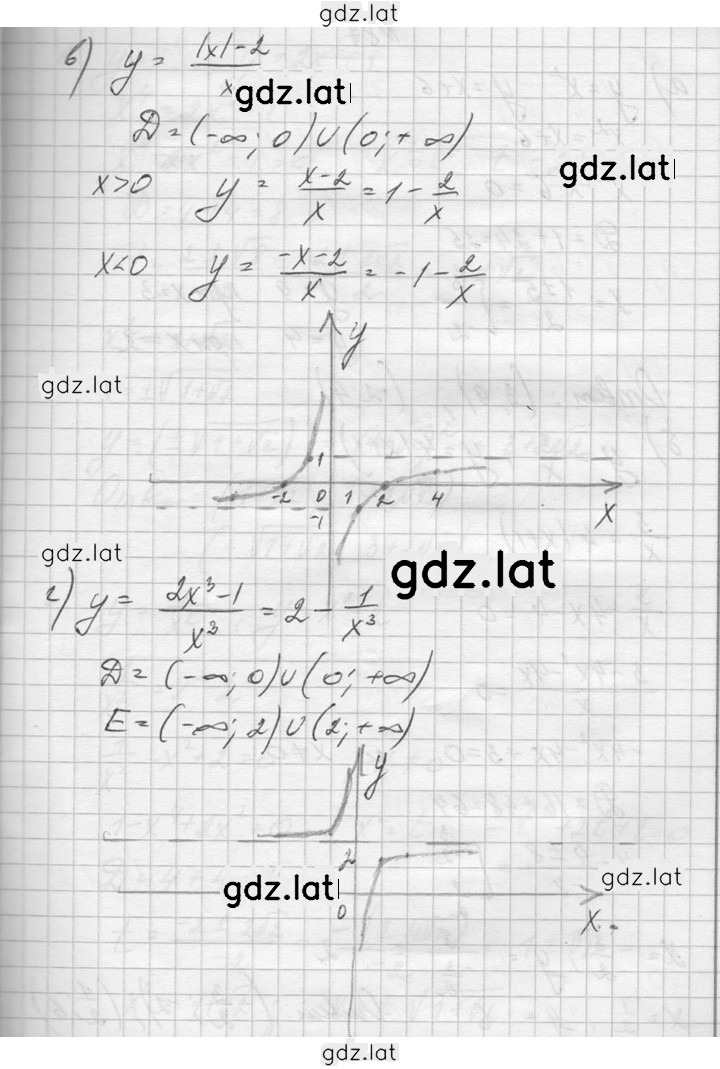 gdz.lat
в) y = (|x|-2)/x
gdz.lat
D = (-∞; 0)∪(0; +∞)
gdz.lat
x>0 y = (x-2)/x = 1 - 2/x
x<0 y = (-x-2)/x = -1 - 2/x
y
gdz.lat
1
-2 0 1 2 4
-1
x
gdz.lat
gdz.lat
г) y = (2x³-1)/x³ = 2 - 1/x³
D = (-∞; 0)∪(0; +∞)
E = (-∞; 2)∪(2; +∞)
y
2
gdz.lat
gdz.lat
0
x
gdz.lat